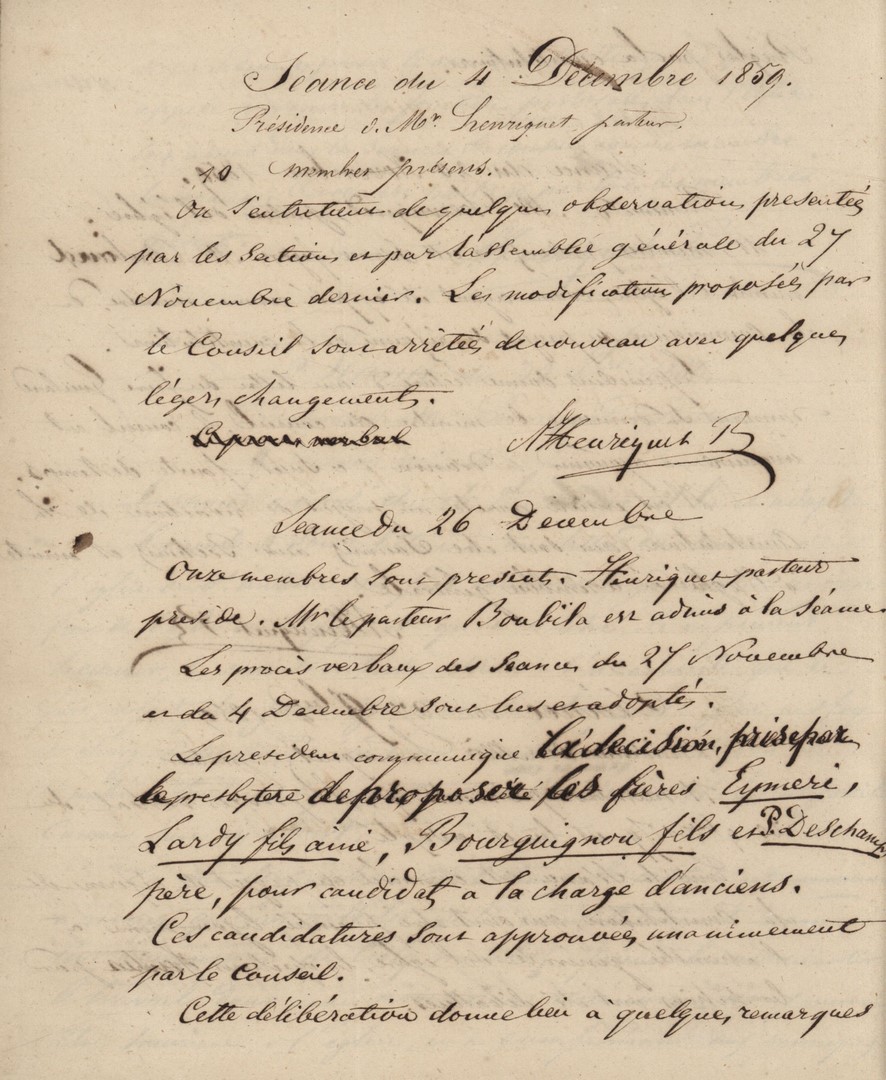 Séance du 4 Décembre 1859.
Présidence d. Mr. Henriquet pasteur.
10 membres présens.
On s'entretient de quelques observations presentées
par les Sections et par l'assemblée générale du 27
Novembre dernier. Les modifications proposées par
le Conseil sont arrêtées de nouveau avec quelques
légers changements.
Le procès verbal
Henriquet
Séance du 26 Decembre
Onze membres sont presents. Henriquet pasteur
preside. Mr le pasteur Boubila est admis à la Séance.
Les procès verbaux des Seances du 27 Novembre
et du 4 Decembre sont lus et adoptés.
Le president communique la décision, prise par
le presbytere de proposer les frères Eymeri,
Lardy fils ainé, Bourguignon fils et P. Deschamps
père, pour candidats à la charge d'anciens.
Ces candidatures sont approuvées unanimement
par le Conseil.
Cette délibération donne lieu à quelques remarques